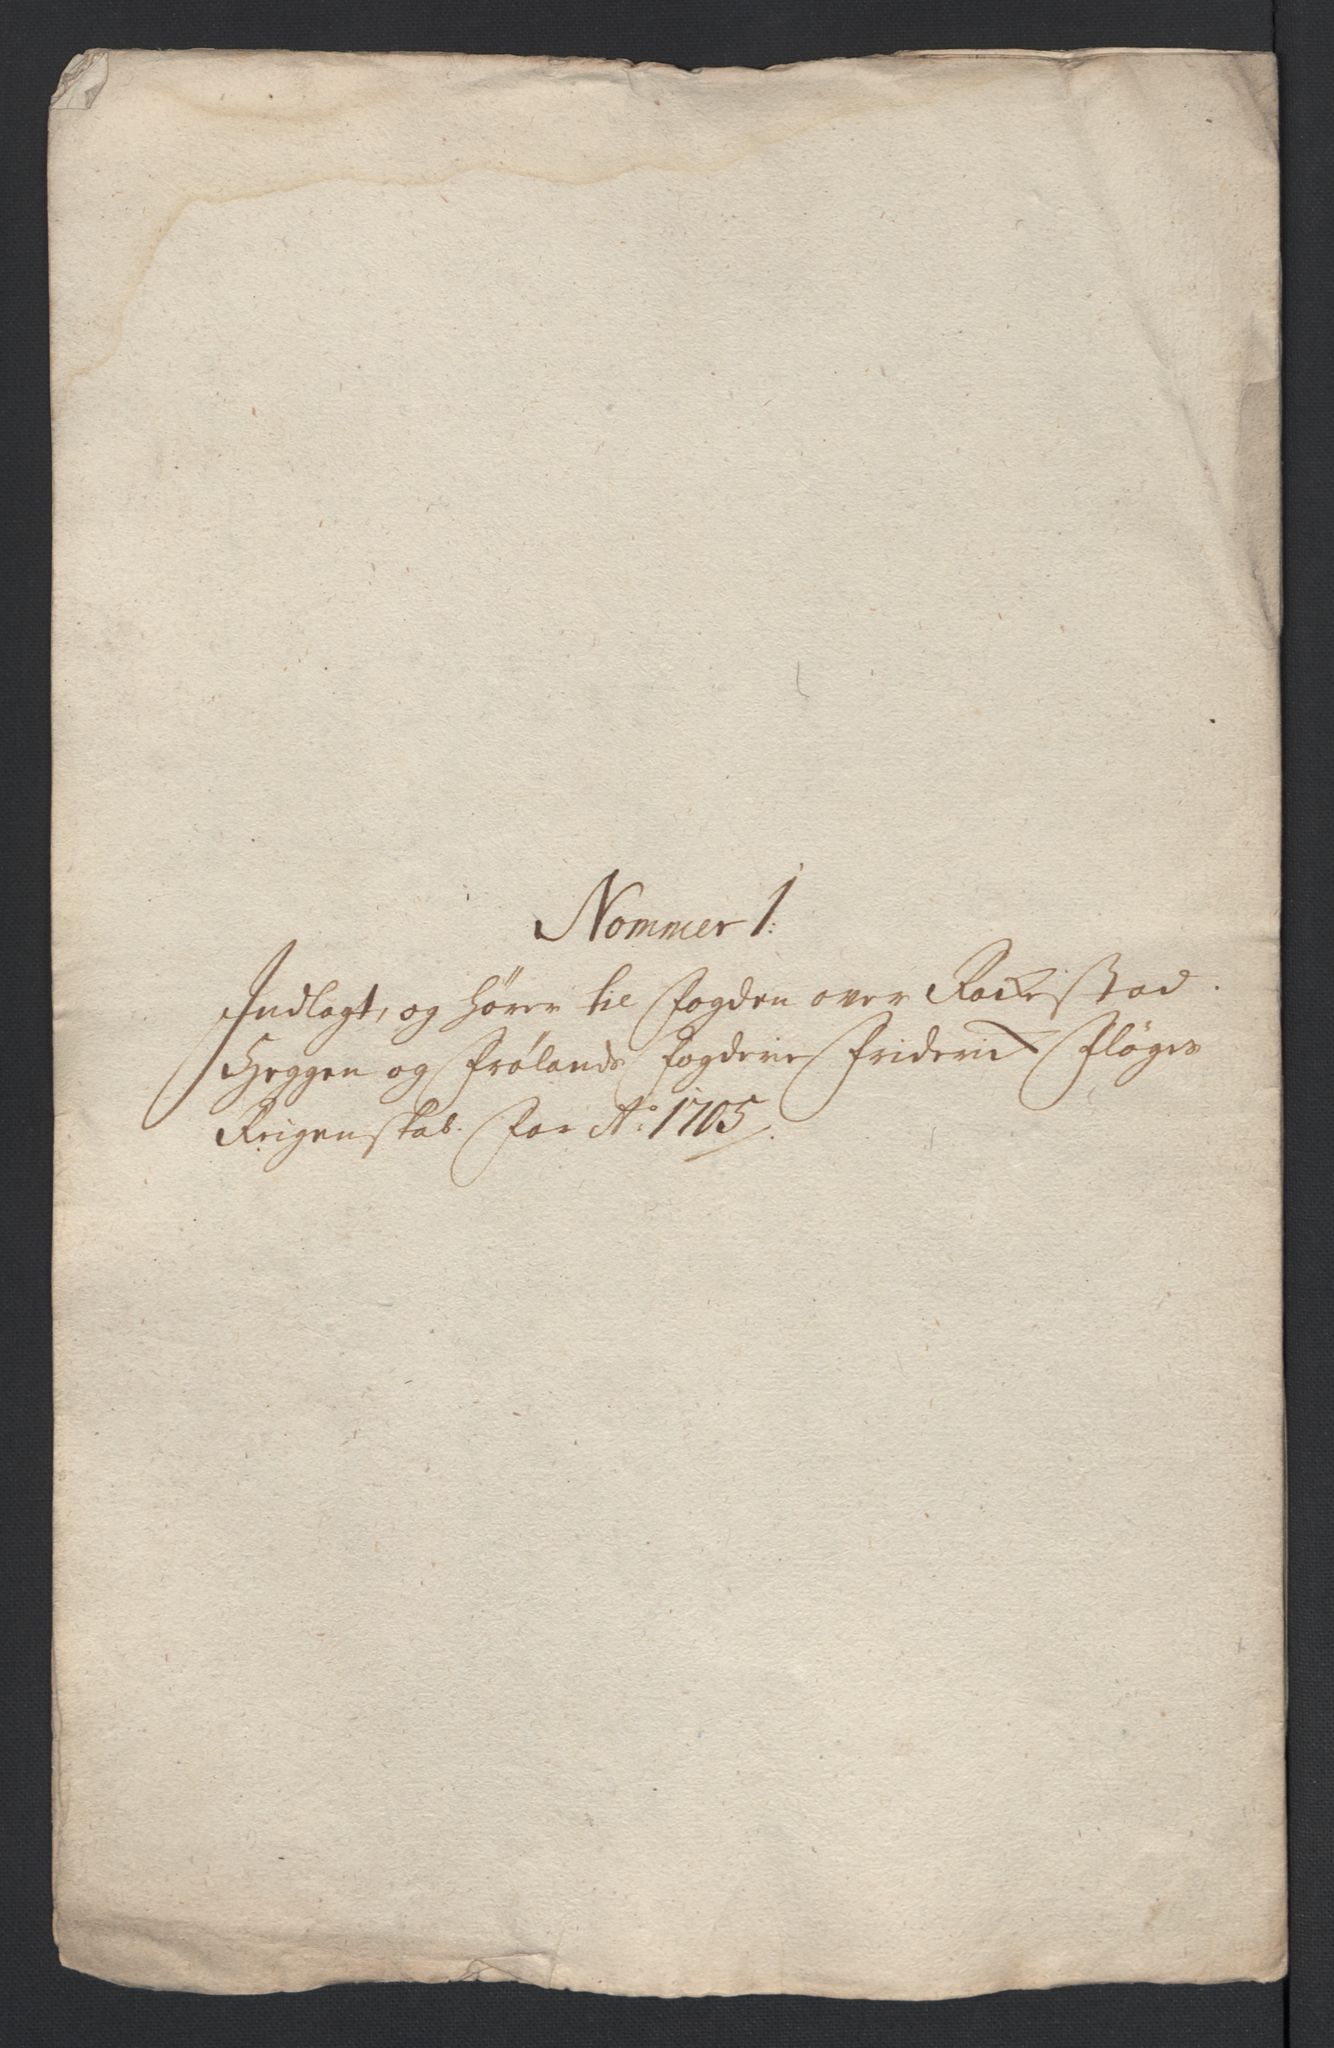 Nommer 1:
Indlagt, og hører til Fogden over Rackestad.
Heggen og Frølands fogderie Friderich Fløges
Reigenskab. For Ao: 1705.